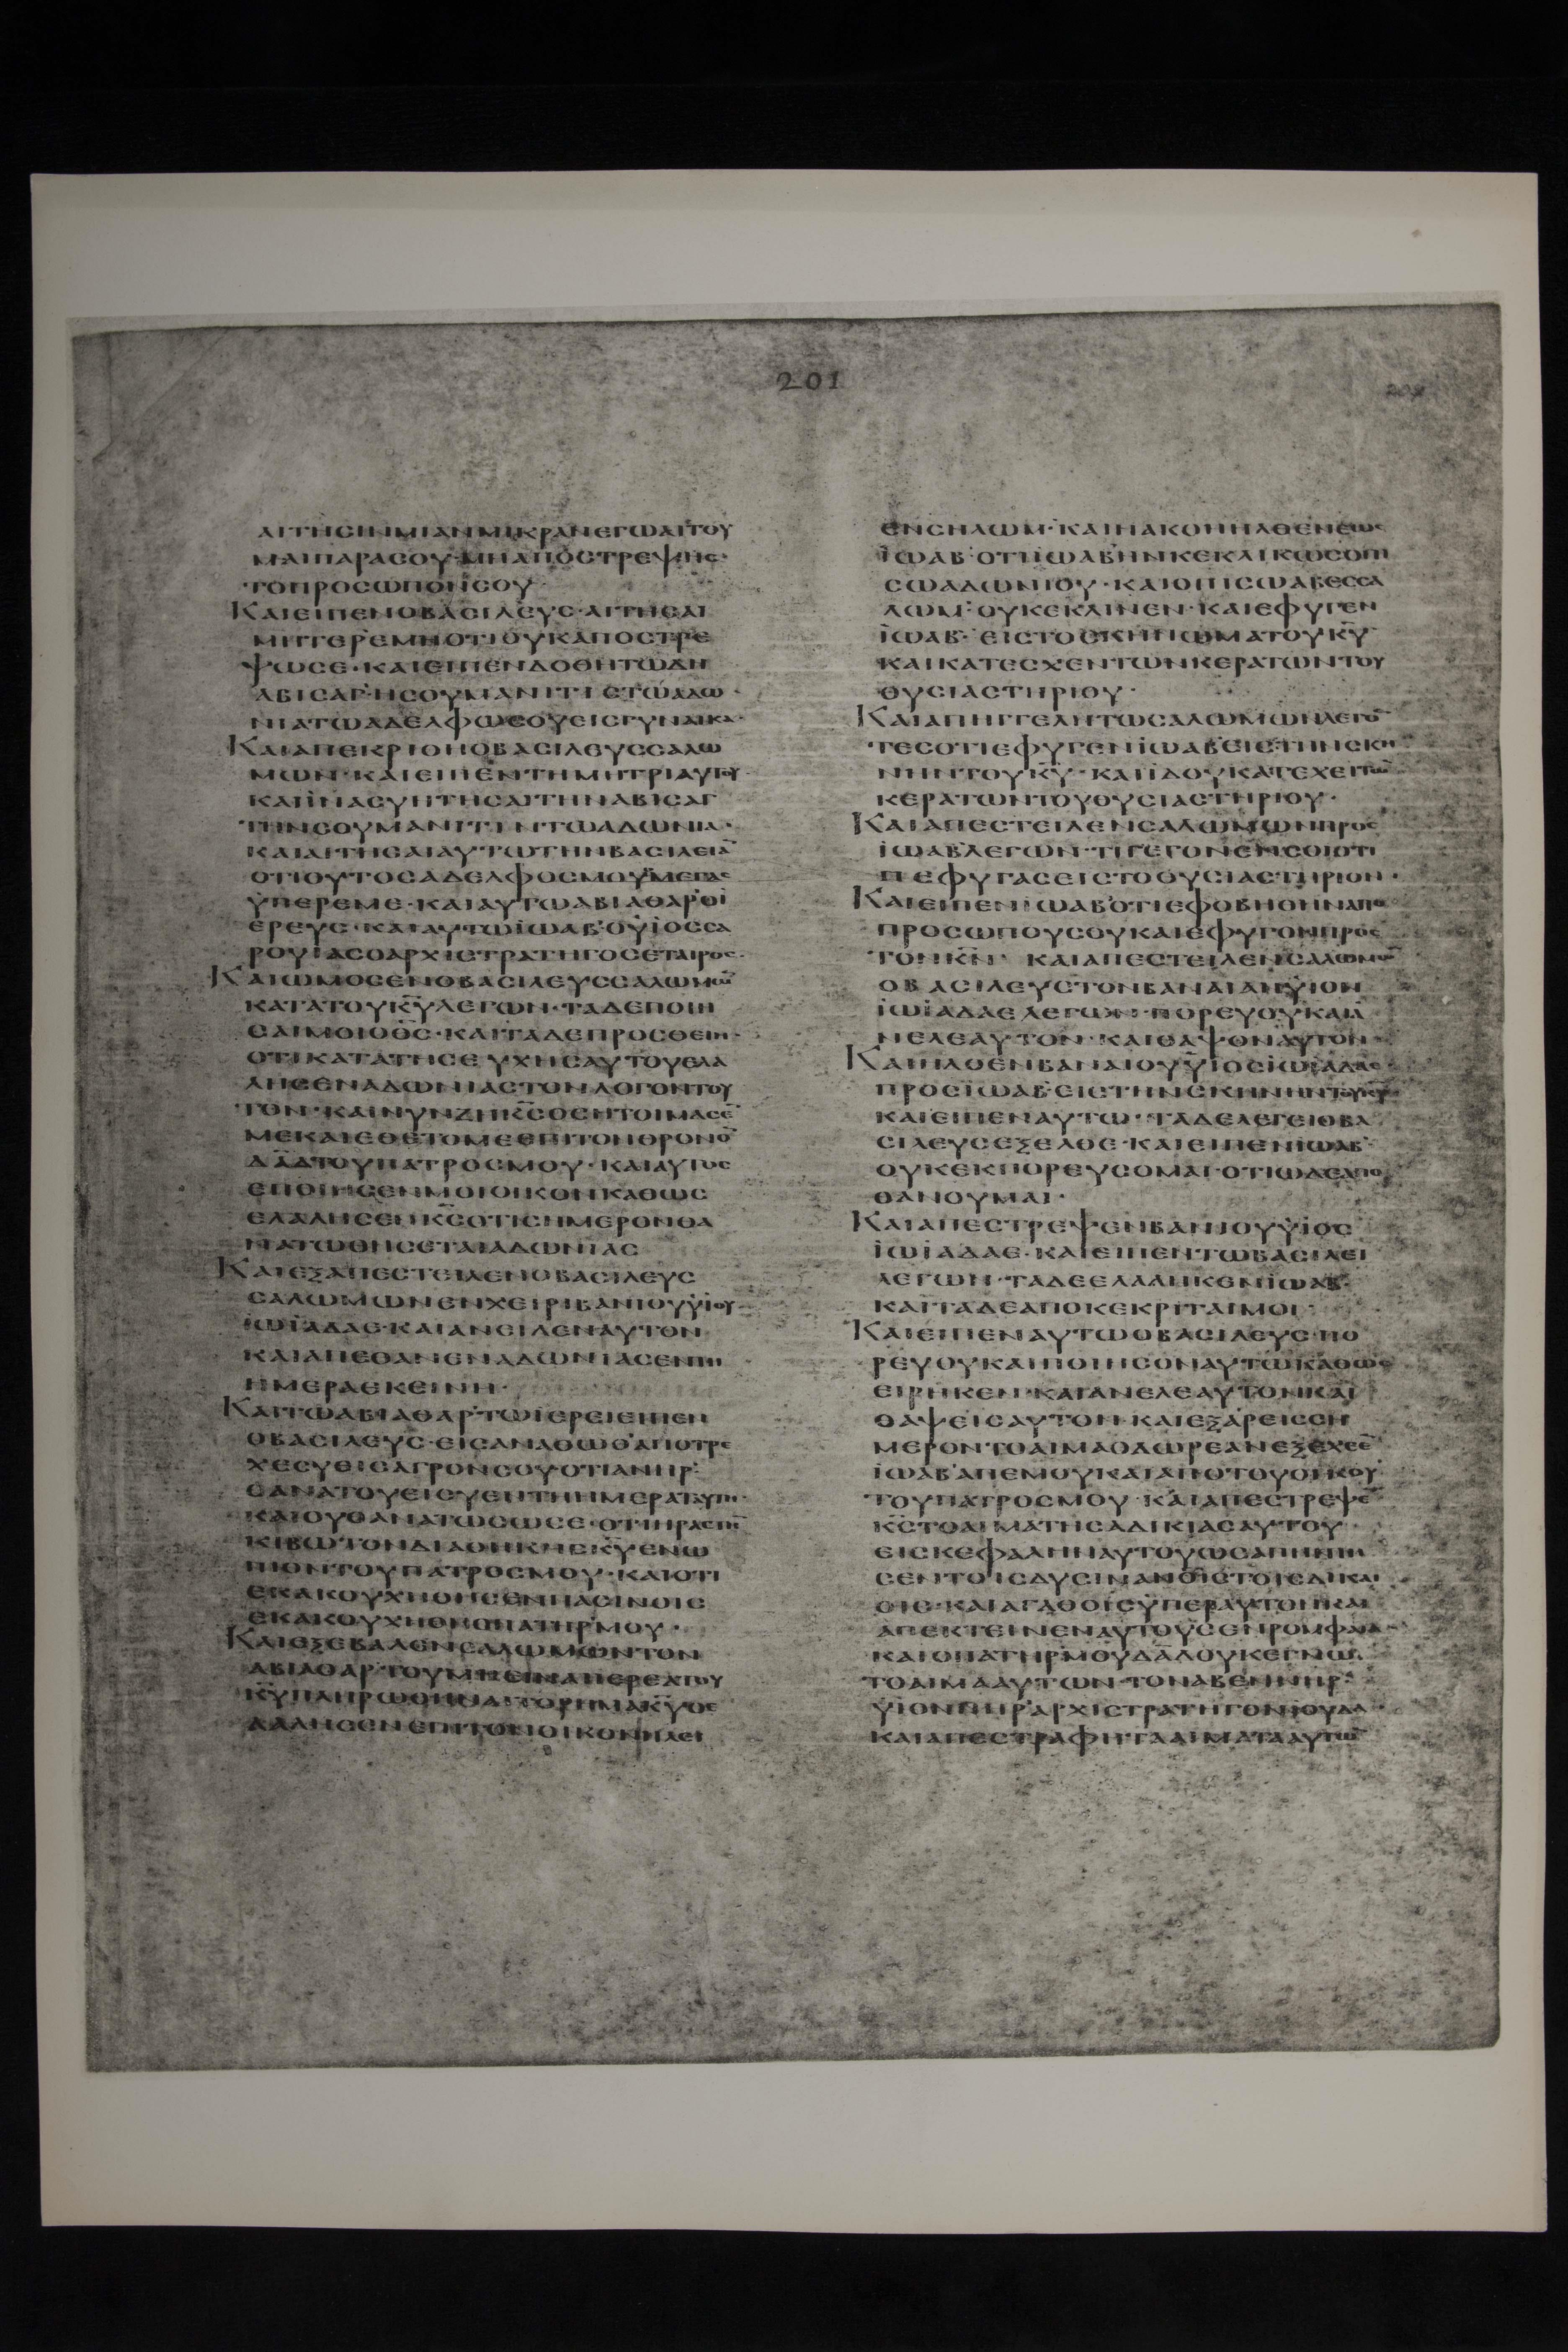 201
ΑΙΤΗΣΙΝΜΙΑΝΜΙΚΡΑΝΕΓΩΑΙΤΟΥ
ΜΑΙΠΑΡΑΣΟΥ·ΜΗΑΠΟΣΤΡΕΨΗΣ·
ΤΟΠΡΟΣΩΠΟΝΣΟΥ
ΚΑΙΕΙΠΕΝΟΒΑΣΙΛΕΥΣ·ΑΙΤΗΣΑΙ
ΜΗΤΕΡΕΜΗΟΤΙΟΥΚΑΠΟΣΤΡΕ
ΨΩΣΕ·ΚΑΙΕΙΠΕΝΔΟΘΗΤΩΔΗ
ΑΒΙΣΑΓ·ΗΣΟΥΜΑΝΙΤΙΣΤΩΑΔΩ
ΝΙΑΤΩΑΔΕΛΦΩΣΟΥΕΙΣΓΥΝΑΙΚΑ·
ΚΑΙΑΠΕΚΡΙΘΗΟΒΑΣΙΛΕΥΣΣΑΛΩ
ΜΩΝ·ΚΑΙΕΙΠΕΝΤΗΜΗΤΡΙΑΥΤΟΥ·
ΚΑΙΪΝΑΣΥΗΤΗΣΑΙΤΗΝΑΒΙΣΑΓ
ΤΗΝΣΟΥΜΑΝΙΤΙΝΤΩΑΔΩΝΙΑ·
ΚΑΙΑΙΤΗΣΑΙΑΥΤΩΤΗΝΒΑΣΙΛΕΙΑ̅
ΟΤΙΟΥΤΟΣΑΔΕΛΦΟΣΜΟΥΜΕΓΑΣ
ΫΠΕΡΕΜΕ·ΚΑΙΑΥΤΩΑΒΙΑΘΑΡ'ΟΪ
ΕΡΕΥΣ·ΚΑΙΑΥΤΩΪΩΑΒ'ΟΫΪΟΣΣΑ
ΡΟΥΪΑΣΟΑΡΧΙΣΤΡΑΤΗΓΟΣΕΤΑΙΡΟΣ·
ΚΑΙΩΜΟΣΕΝΟΒΑΣΙΛΕΥΣΣΑΛΩΜΩ̅
ΚΑΤΑΤΟΥΚ̅Υ̅ΛΕΓΩΝ·ΤΑΔΕΠΟΙΗ
ΣΑΙΜΟΙΟΘ̅Σ̅·ΚΑΙΤΑΔΕΠΡΟΣΘΕΙΗ·
ΟΤΙΚΑΤΑΤΗΣΕΥΧΗΣΑΥΤΟΥΕΛΑ
ΛΗΣΕΝΑΔΩΝΙΑΣΤΟΝΛΟΓΟΝΤΟΥ
ΤΟΝ·ΚΑΙΝΥΝΖΗΚ̅Σ̅ΟΣΗΤΟΙΜΑΣΕ̅
ΜΕΚΑΙΕΘΕΤΟΜΕΕΠΙΤΟΝΘΡΟΝΟ̅
Δ̅Α̅Δ̅ΤΟΥΠΑΤΡΟΣΜΟΥ·ΚΑΙΑΥΤΟΣ
ΕΠΟΙΗΣΕΝΜΟΙΟΙΚΟΝΚΑΘΩΣ
ΕΛΑΛΗΣΕΝΚ̅Σ̅ΟΤΙΣΗΜΕΡΟΝΘΑ
ΝΑΤΩΘΗΣΕΤΑΙΑΔΩΝΙΑΣ
ΚΑΙΕΞΑΠΕΣΤΕΙΛΕΝΟΒΑΣΙΛΕΥΣ
ΣΑΛΩΜΩΝΕΝΧΕΙΡΙΒΑΝΙΟΥΫΪΟΥ
ΪΩΪΑΔΑΕ·ΚΑΙΑΝΕΙΛΕΝΑΥΤΟΝ
ΚΑΙΑΠΕΘΑΝΕΝΑΔΩΝΙΑΣΕΝΤΗ
ΗΜΕΡΑΕΚΕΙΝΗ·
ΚΑΙΤΩΑΒΙΑΘΑΡ'ΤΩΪΕΡΕΙΕΙΠΕΝ
ΟΒΑΣΙΛΕΥΣ·ΕΙΣΑΝΑΘΩΘ'ΑΠΟΤΡΕ
ΧΕΣΥΘΙΣΑΓΡΟΝΣΟΥΟΤΙΑΝΗΡ'
ΘΑΝΑΤΟΥΕΙΣΥΕΝΤΗΗΜΕΡΑΤΑΥΤΗ·
ΚΑΙΟΥΘΑΝΑΤΩΣΩΣΕ·ΟΤΙΗΡΑΣΤΗ̅
ΚΙΒΩΤΟΝΔΙΑΘΗΚΗΣΚ̅Υ̅ΕΝΩ
ΠΙΟΝΤΟΥΠΑΤΡΟΣΜΟΥ·ΚΑΙΟΤΙ
ΕΚΑΚΟΥΧΗΘΗΣΕΝΠΑΣΙΝΟΙΣ
ΕΚΑΚΟΥΧΗΘΗΟΠΑΤΗΡ'ΜΟΥ·
ΚΑΙΕΞΕΒΑΛΕΝΣΑΛΩΜΩΝΤΟΝ
ΑΒΙΑΘΑΡ'ΤΟΥΜΗΕΙΝΑΙΪΕΡΕΑΤΟΥ
Κ̅Υ̅ΠΛΗΡΩΘΗΝΑΙΤΟΡΗΜΑΚ̅Υ̅Ο
ΛΑΛΗΣΕΝΕΠΙΤΟΝΟΙΚΟΝΗΛΕΙ
ΕΝΣΗΛΩΜ·ΚΑΙΗΑΚΟΗΗΛΘΕΝΕΩΣ
ΪΩΑΒ'ΟΤΙΪΩΑΒ'ΗΝΚΕΚΛΙΚΩΣΟΠΙ
ΣΩΑΔΩΝΙΟΥ·ΚΑΙΟΠΙΣΩΑΒΕΣΣΑ
ΛΩΜ'ΟΥΚΕΚΛΙΝΕΝ·ΚΑΙΕΦΥΓΕΝ
ΪΩΑΒ'ΕΙΣΤΟΣΚΗΝΩΜΑΤΟΥΚ̅Υ̅
ΚΑΙΚΑΤΕΣΧΕΝΤΩΝΚΕΡΑΤΩΝΤΟΥ
ΘΥΣΙΑΣΤΗΡΙΟΥ·
ΚΑΙΑΠΗΓΓΕΛΗΤΩΣΑΛΩΜΩΝΛΕΓΟ̅
ΤΕΣΟΤΙΕΦΥΓΕΝΪΩΑΒ'ΕΙΣΤΗΝΣΚΗ
ΝΗΝΤΟΥΚ̅Υ̅·ΚΑΙΪΔΟΥΚΑΤΕΧΕΙΤΩ̅
ΚΕΡΑΤΩΝΤΟΥΘΥΣΙΑΣΤΗΡΙΟΥ·
ΚΑΙΑΠΕΣΤΕΙΛΕΝΣΑΛΩΜΩΝΠΡΟΣ
ΪΩΑΒ'ΛΕΓΩΝ·ΤΙΓΕΓΟΝΕΝΣΟΙΟΤΙ
ΠΕΦΥΓΑΣΕΙΣΤΟΘΥΣΙΑΣΤΗΡΙΟΝ·
ΚΑΙΕΙΠΕΝΪΩΑΒ'ΟΤΙΕΦΟΒΗΘΗΝΑΠΟ
ΠΡΟΣΩΠΟΥΣΟΥΚΑΙΕΦΥΓΟΝΠΡΟΣ
ΤΟΝΚ̅Ν̅ ΚΑΙΑΠΕΣΤΕΙΛΕΝΣΑΛΩΜΩ̅
ΟΒΑΣΙΛΕΥΣΤΟΝΒΑΝΑΙΑΝΫΙΟΝ
ΪΩΪΑΔΑΕΛΕΓΩΝ·ΠΟΡΕΥΟΥΚΑΙΑ
ΝΕΛΕΑΥΤΟΝ·ΚΑΙΘΑΨΟΝΑΥΤΟΝ·
ΚΑΙΗΛΘΕΝΒΑΝΑΙΟΥΫΙΟΣΪΩΪΑΔΑΕ
ΠΡΟΣΪΩΑΒ'ΕΙΣΤΗΝΣΚΗΝΗΝΤΟΥΚ̅Υ̅
ΚΑΙΕΙΠΕΝΑΥΤΩ·ΤΑΔΕΛΕΓΕΙΟΒΑ
ΣΙΛΕΥΣΕΞΕΛΘΕ·ΚΑΙΕΙΠΕΝΪΩΑΒ'
ΟΥΚΕΚΠΟΡΕΥΣΟΜΑΙ·ΟΤΙΩΔΕΑΠΟ
ΘΑΝΟΥΜΑΙ·
ΚΑΙΑΠΕΣΤΡΕΨΕΝΒΑΝΙΟΥΫΪΟΣ
ΪΩΪΑΔΑΕ·ΚΑΙΕΙΠΕΝΤΩΒΑΣΙΛΕΙ
ΛΕΓΩΝ·ΤΑΔΕΕΛΑΛΗΚΕΝΪΩΑΒ'
ΚΑΙΤΑΔΕΑΠΟΚΕΚΡΙΤΑΙΜΟΙ·
ΚΑΙΕΙΠΕΝΑΥΤΩΟΒΑΣΙΛΕΥΣ·ΠΟ
ΡΕΥΟΥΚΑΙΠΟΙΗΣΟΝΑΥΤΩΚΑΘΩΣ
ΕΙΡΗΚΕΝ·ΚΑΙΑΝΕΛΕΑΥΤΟΝΚΑΙ
ΘΑΨΕΙΣΑΥΤΟΝ·ΚΑΙΕΞΑΡΕΙΣΣΗ
ΜΕΡΟΝΤΟΑΙΜΑΟΔΩΡΕΑΝΕΞΕΧΕΕ̅
ΪΩΑΒ'ΑΠΕΜΟΥΚΑΙΑΠΟΤΟΥΟΙΚΟΥ
ΤΟΥΠΑΤΡΟΣΜΟΥ·ΚΑΙΑΠΕΣΤΡΕΨΕ̅
Κ̅Σ̅ΤΟΑΙΜΑΤΗΣΑΔΙΚΙΑΣΑΥΤΟΥ
ΕΙΣΚΕΦΑΛΗΝΑΥΤΟΥΩΣΑΠΗΝΤΗ
ΣΕΝΤΟΙΣΔΥΣΙΝΑΝΟΙΣΤΟΙΣΔΙΚΑΙ
ΟΙΣ·ΚΑΙΑΓΑΘΟΙΣΫΠΕΡΑΥΤΟΝΚΑΙ
ΑΠΕΚΤΕΙΝΕΝΑΥΤΟΥΣΕΝΡΟΜΦΑΙΑ·
ΚΑΙΟΠΑΤΗΡ'ΜΟΥΔ̅Α̅Δ̅ΟΥΚΕΓΝΩ
ΤΟΑΙΜΑΑΥΤΩΝ·ΤΟΝΑΒΕΝΝΗΡ'
ΫΙΟΝΝΗΡ'ΑΡΧΙΣΤΡΑΤΗΓΟΝΙΟΥΔΑ
ΚΑΙΑΠΕΣΤΡΑΦΗ·ΤΑΑΙΜΑΤΑΑΥΤΩ̅